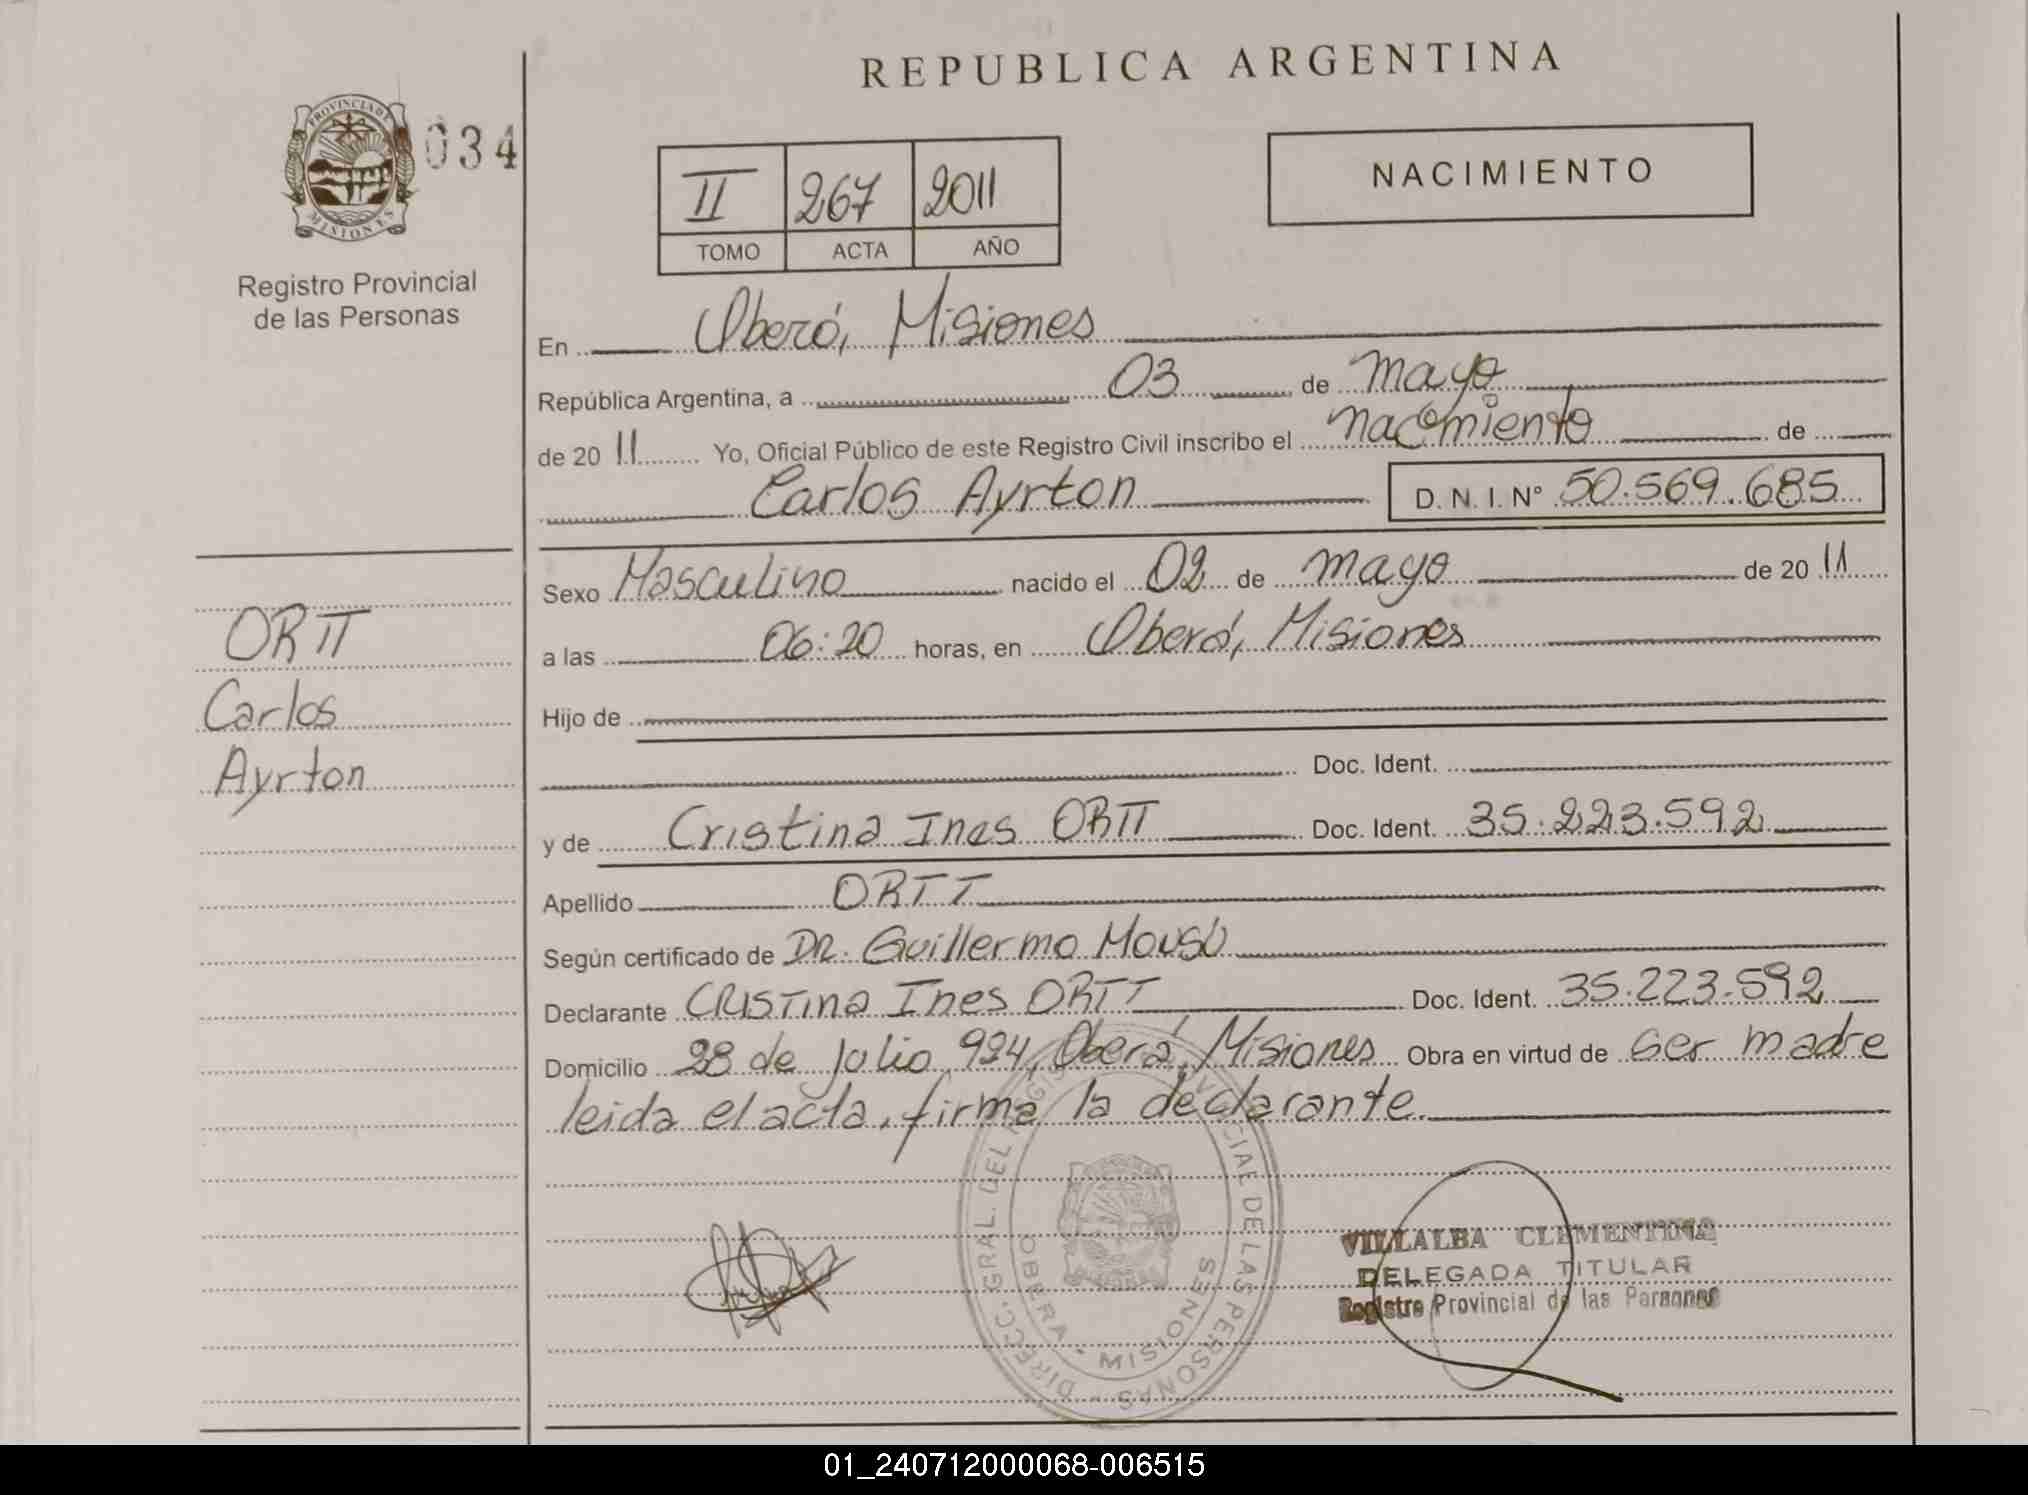 REPUBLICA ARGENTINA
PROVINCIA DE MISIONES
034
Registro Provincial
de las Personas
II 267 2011
TOMO ACTA AÑO
NACIMIENTO
En Oberá, Misiones
República Argentina, a 03 de mayo
de 2011 Yo, Oficial Público de este Registro Civil inscribo el nacimiento de
Carlos Ayrton D. N. I. Nº 50.569.685
Sexo Masculino nacido el 02 de mayo de 2011
a las 06:20 horas, en Oberá, Misiones
Hijo de
Doc. Ident.
y de Cristina Ines ORTT Doc. Ident. 35.223.592
Apellido ORTT
Según certificado de DR. Guillermo
Declarante Cristina Ines ORTT Doc. Ident. 35.223.592
Domicilio 28 de Julio 924, Oberá, Misiones Obra en virtud de ser madre
leida el acta, firma la declarante
ORTT
Carlos
Ayrton
DIRECC. GRAL. DEL REGISTRO PROVINCIAL DE LAS PERSONAS
OBERA - MISIONES
VILLALBA CLEMENTINA
DELEGADA TITULAR
Registro Provincial de las Personas
01_240712000068-006515